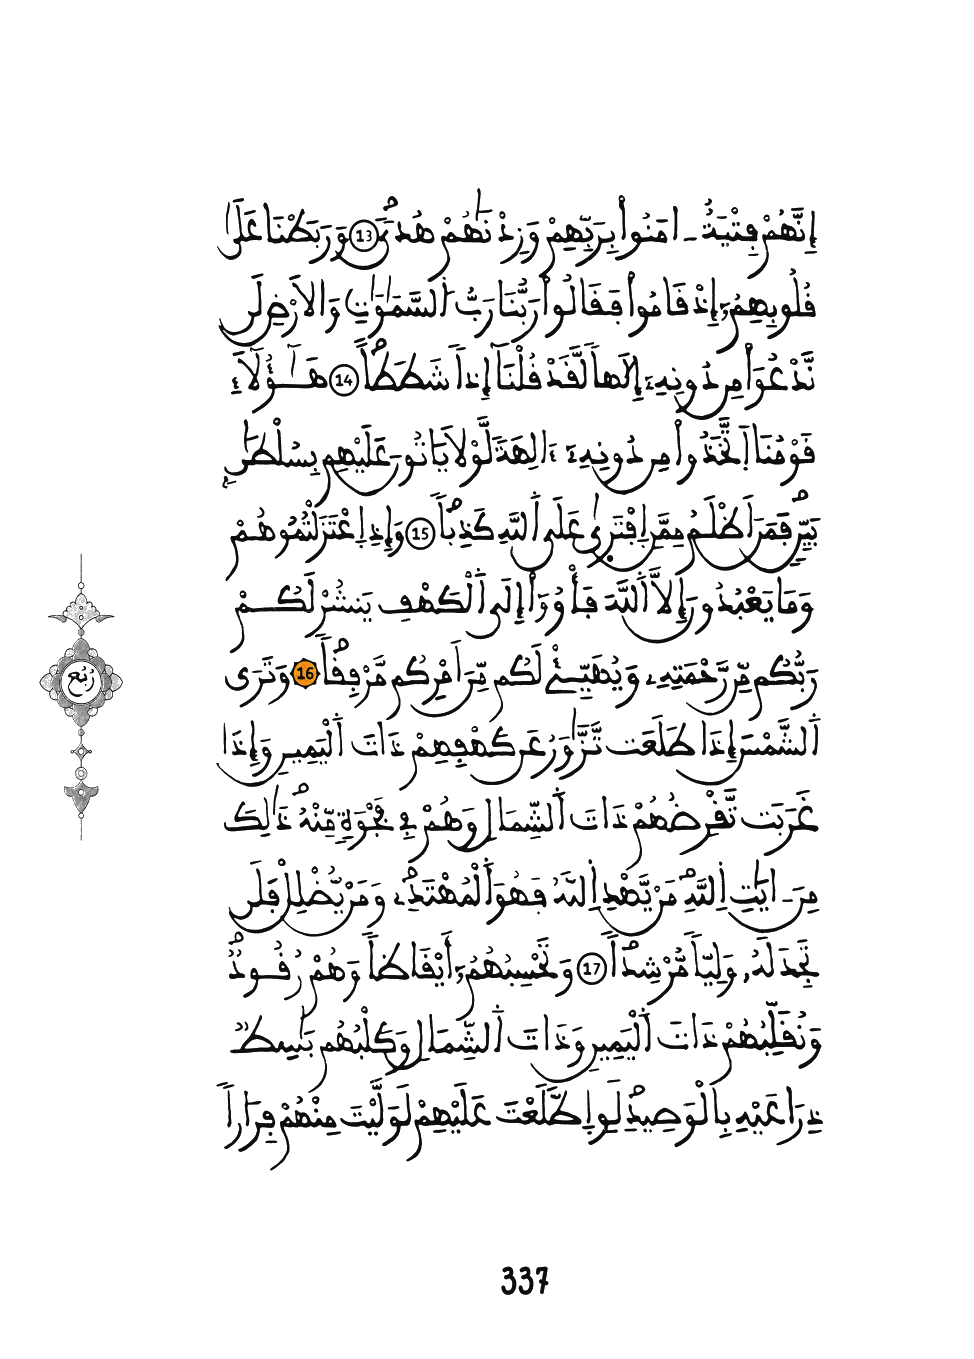 إِنَّهُمْ فِتْيَةٌ ـ امَنُواْ بِرَبِّهِمْ وَزِدْنَٰهُمْ هُدىٗ 13 وَرَبَطْنَا عَلَىٰ
قُلُوبِهِمُۥٓ إِذْ قَامُواْ فَقَالُواْ رَبُّنَا رَبُّ اُ۬لسَّمَٰوَٰتِ وَالَارْضِ لَن
نَّدْعُوَاْ مِن دُونِهِۦٓ إِلَٰهاٗ لَّقَدْ قُلْنَآ إِذاٗ شَطَطاًۖ 14 هَٰٓؤُلَآءِ
قَوْمُنَا اَ۪تَّخَذُواْ مِن دُونِهِۦٓ ءَالِهَةٗ لَّوْلَا يَاتُونَ عَلَيْهِم بِسُلْطَٰنِۢ
بَيِّنٖۖ فَمَنَ اَظْلَمُ مِمَّنِ اِ۪فْتَر۪ىٰ عَلَى اَ۬للَّهِ كَذِباٗۖ 15 وَإِذِ اِ۪عْتَزَلْتُمُوهُمْ
وَمَا يَعْبُدُونَ إِلَّا اَ۬للَّهَ فَأْوُۥٓاْ إِلَى اَ۬لْكَهْفِ يَنشُرْ لَكُمْ
رَبُّكُم مِّن رَّحْمَتِهِۦ وَيُهَيِّےْ لَكُم مِّنَ اَمْرِكُم مَّرْفِقاٗۖ 16 وَتَرَى
اَ۬لشَّمْسَ إِذَا طَلَعَت تَّزَّٰوَرُ عَن كَهْفِهِمْ ذَاتَ اَ۬لْيَمِينِ وَإِذَا
غَرَبَت تَّقْرِضُهُمْ ذَاتَ اَ۬لشِّمَالِ وَهُمْ فِے فَجْوَةٖ مِّنْهُۖ ذَٰلِكَ
مِنَ ـ ايَٰتِ اِ۬للَّهِۖ مَنْ يَّهْدِ اِ۬للَّهُ فَهُوَ اَ۬لْمُهْتَدِۦۖ وَمَنْ يُّضْلِلْ فَلَن
تَجِدَ لَهُۥ وَلِيّاٗ مُّرْشِداٗۖ 17 وَتَحْسِبُهُمُۥٓ أَيْقَاظاٗ وَهُمْ رُقُودٞۖ
وَنُقَلِّبُهُمْ ذَاتَ اَ۬لْيَمِينِ وَذَاتَ اَ۬لشِّمَالِ وَكَلْبُهُم بَٰسِطٞ
ذِرَاعَيْهِ بِالْوَصِيدِۖ لَوِ اِ۪طَّلَعْتَ عَلَيْهِمْ لَوَلَّيْتَ مِنْهُمْ فِرَاراٗ
رُبُع
337